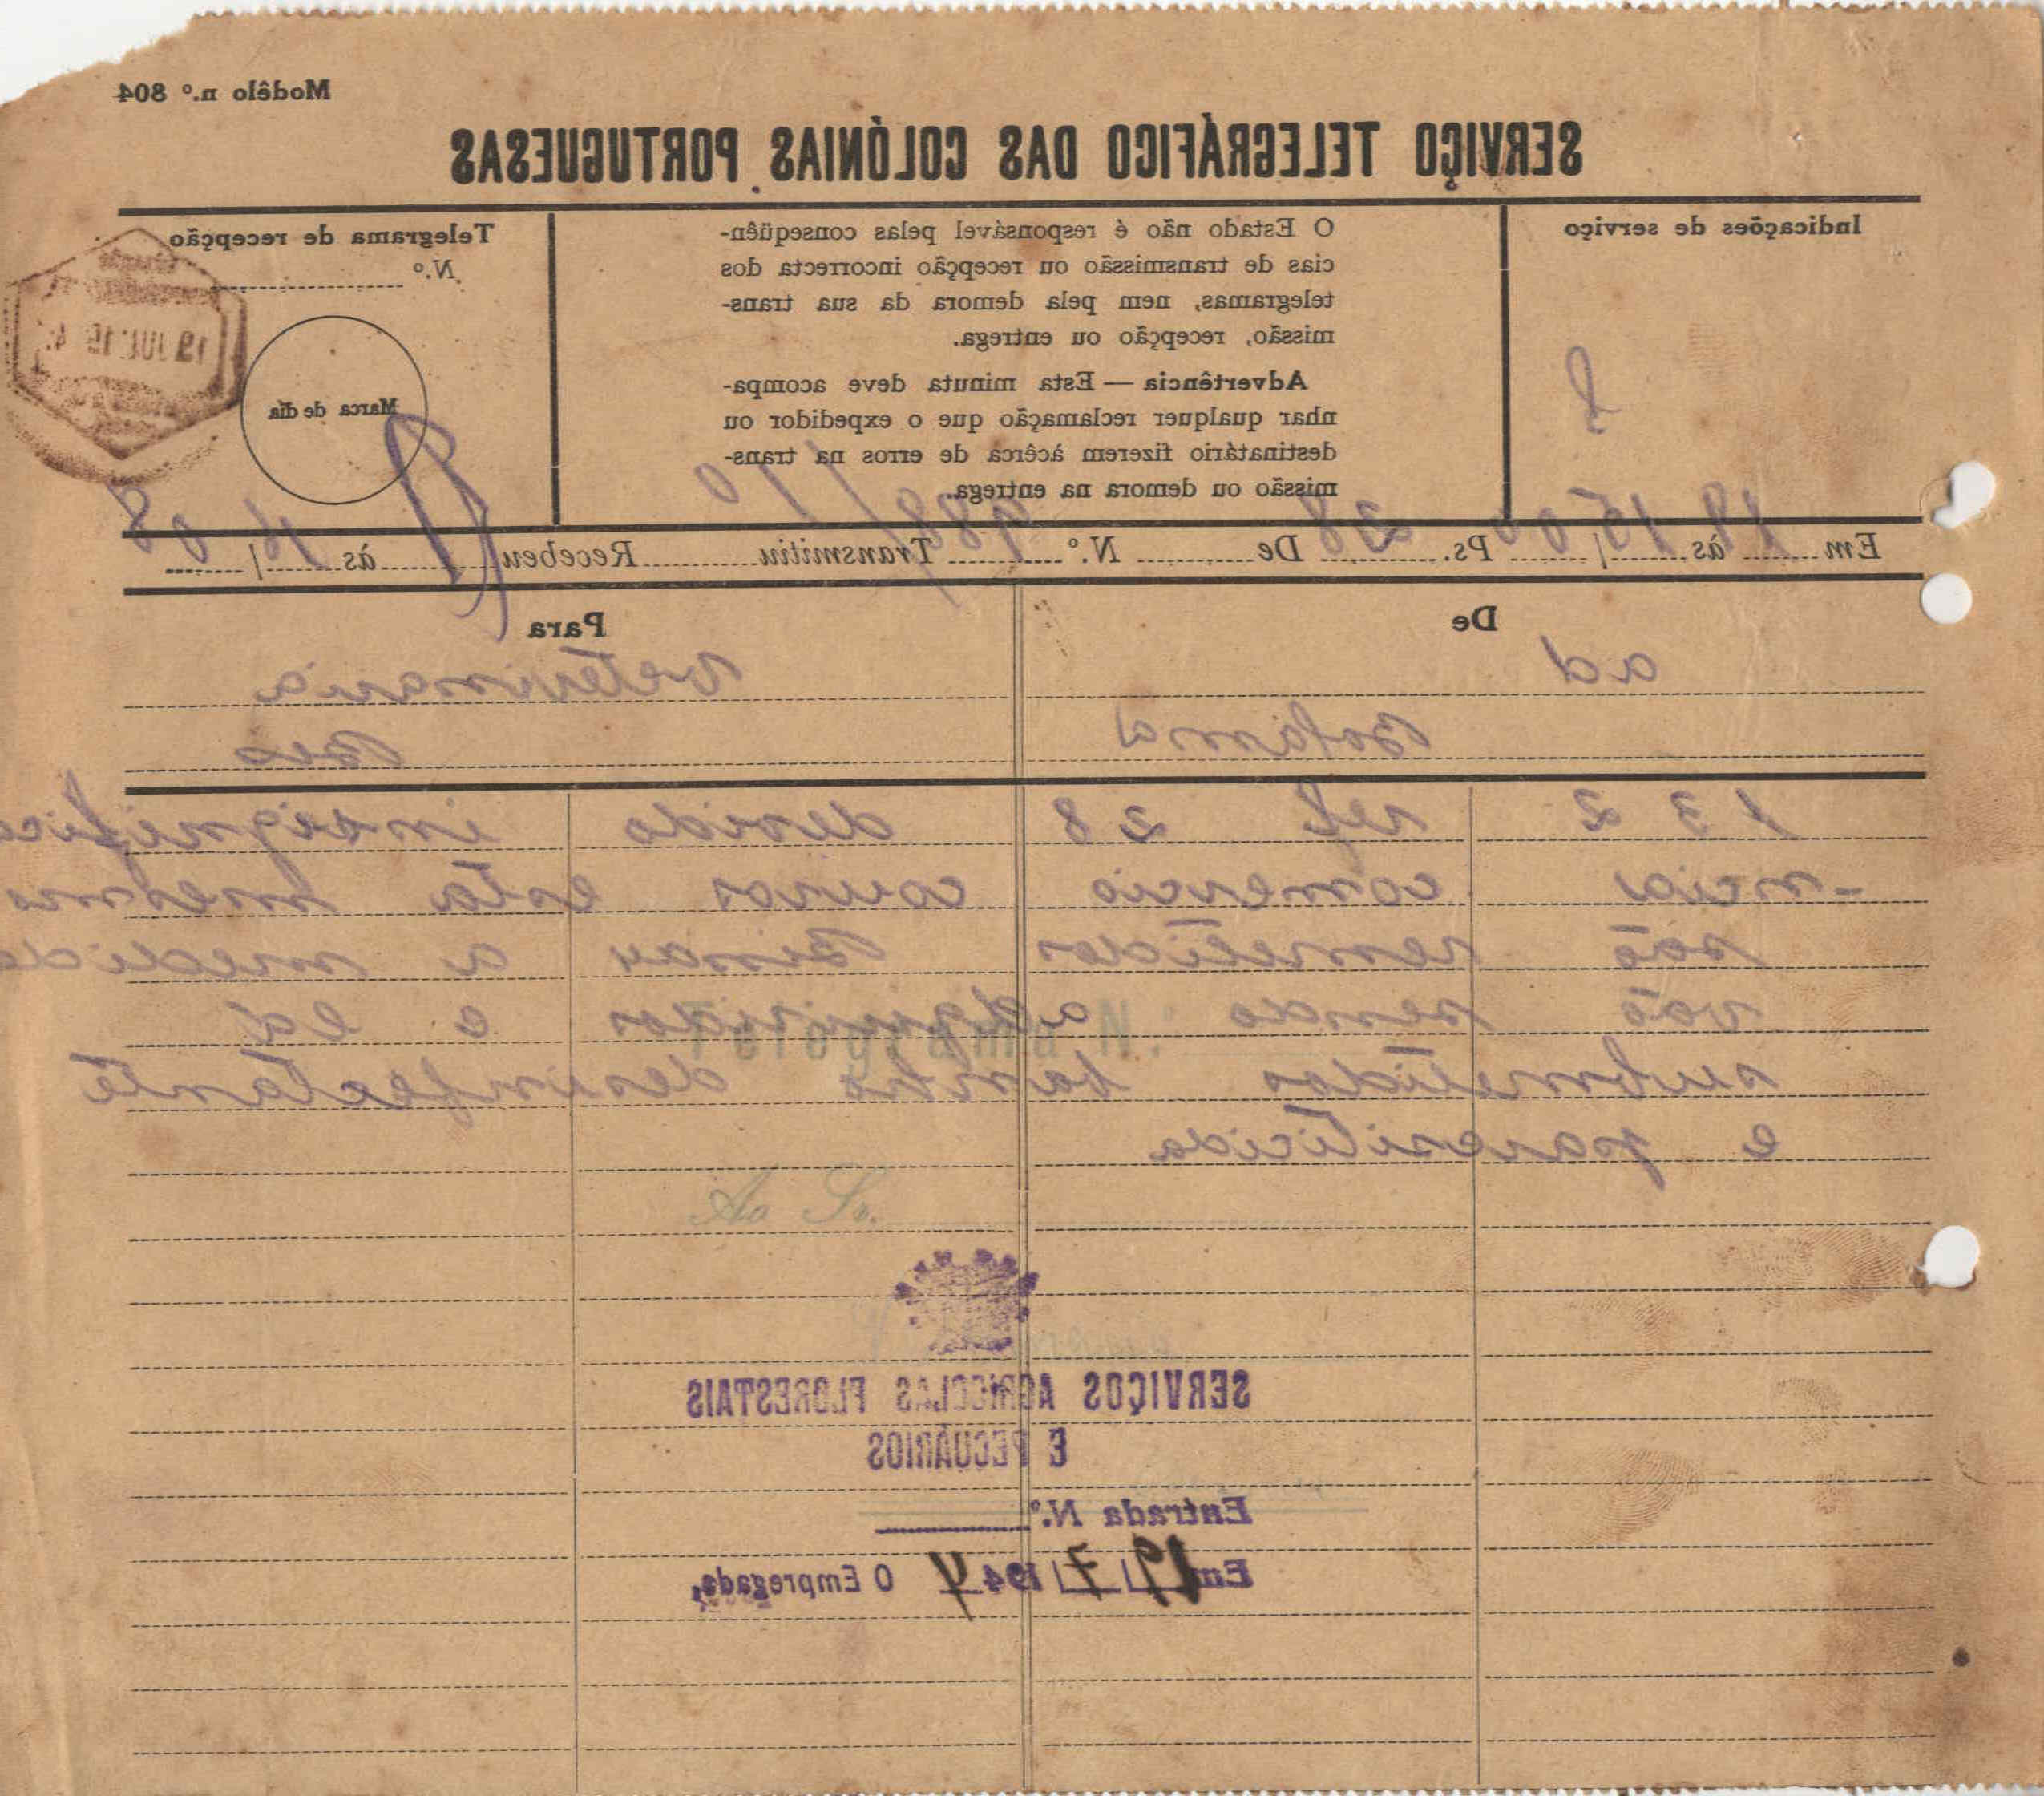 Modêlo n.º 804
SERVIÇO TELEGRÁFICO DAS COLÓNIAS PORTUGUESAS
Indicações de serviço
O Estado não é responsável pelas conseqüên-
cias de transmissão ou recepção incorrecta dos
telegramas, nem pela demora da sua trans-
missão, recepção ou entrega.
Advertência — Esta minuta deve acompa-
nhar qualquer reclamação que o expedidor ou
destinatário fizerem àcêrca de erros na trans-
missão ou demora na entrega.
Telegrama de recepção
N.º
Marca de dia
19 JUL 19
Em 19 às 15/00 Ps. 28 De N.º 988/10 Transmitiu Recebeu às 16/08
De
Para
ad
veterinaria
Bolama
Bis
132 ref 28 devido insignifica
-ncia comercio couros esta
são remetidos Bissau a medida
vão sendo adquiridos e
submetidos banho desinfectante
e parasiticida
Telegrama N.
Ao Sr.
SERVIÇOS AGRÍCOLAS FLORESTAIS
E PECUÁRIOS
Entrada N.º
Em 19/7/1944 O Empregado,